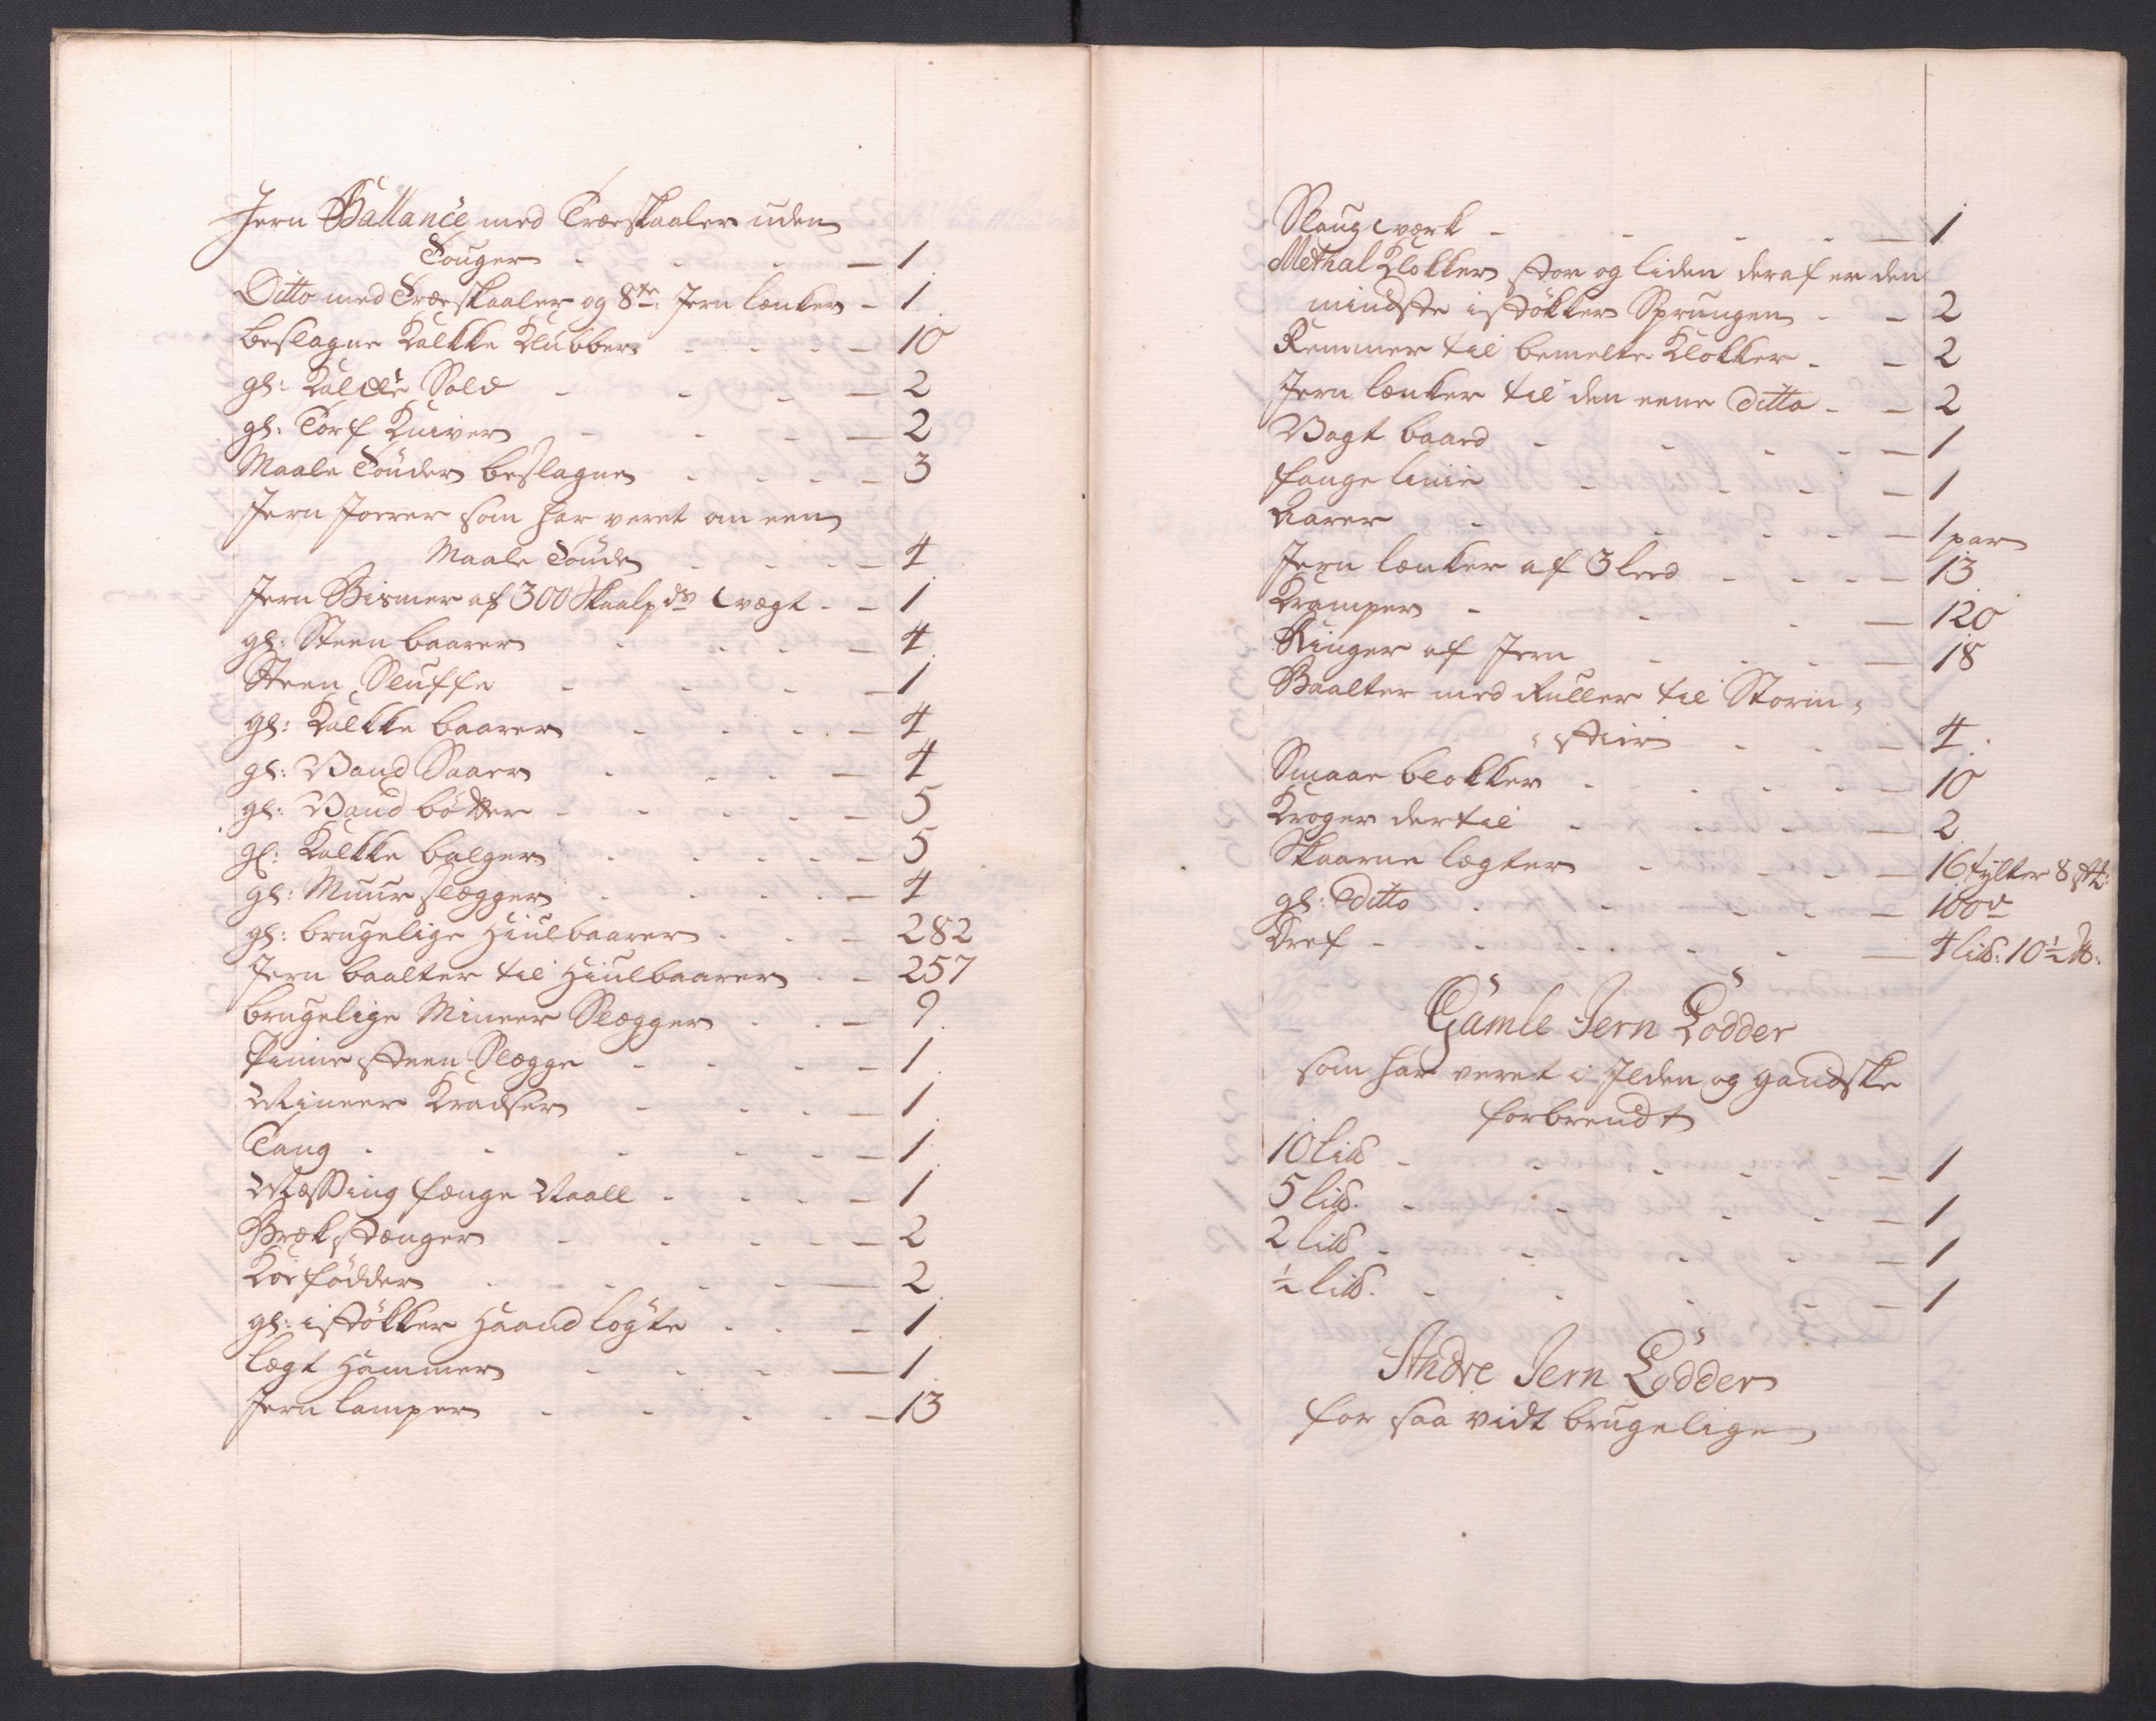 Jern Ballance med Træskaaler uden
Touger - - - - 1
Ditto med Træskaaler og 8te: Jern lænker - 1
beslagne Kalkke Klubber - - - 10
gl: Kalcke Sold - - - - 2
gl: Torf Kniver - - - - 2
Maale Tönder beslagne - - - - 3
Jern Joerer som har veret om een
Maale Tönde - - - - 4
Jern Bismer af 300 Skaalpds vægt - - 1
gl: Steen baarer - - - - 4
Steen Sluffe - - - - 1
gl: Kalkke baarer - - - - 4
gl: Vand Saaer - - - - 4
gl: Vand bötter - - - - 5
gl: Kalkke balger - - - - 5
gl: Muur slegger - - - - 4
gl: brugelige Hiulbaarer - - - 282
Jern baalter til Hiulbaarer - - 257
brugelige Mineer Slegger - - - 9
Pinne steen Slegge - - - - 1
Mineer Kradser - - - - 1
Tang - - - - - 1
Messing fænge Maall - - - - 1
Brækstænger - - - - 2
Koefödder - - - - 2
gl: istökker Haandlögte - - - 1
Legt Hammer - - - - 1
Jern lamper - - - - 13
Slaug værk - - - - 1
Methal Klokker stor og liden deraf er den
mindste istökker Sprungen - - 2
Remmer til bemelte Klokker - - 2
Jern lænker til den eene Ditto - - 2
Vagt baard - - - - 1
fange linie - - - - 1
Aarer - - - - 1 par
Jern lænker af 3 leed - - - - 13
Kramper - - - - 120
Ringer af Jern - - - - 18
Baalter med Ruller til Storm-
- - - - 4
Smaae blokker - - - - 10
Kroger dertil - - - - 2
Skaarne legter - - - - 16 tylter 8 stk:
gl: Ditto - - - - 100de
Dref - - - - 4 lib: 10½ lb:
Gamle Jern Lodder
som har veret i Ilden og gandske
forbrendt
10 lib - - - - 1
5 lib. - - - - 1
2 lib - - - - 1
½ lib. - - - - 1
Andre Jern Lodder
for saa vidt brugelige